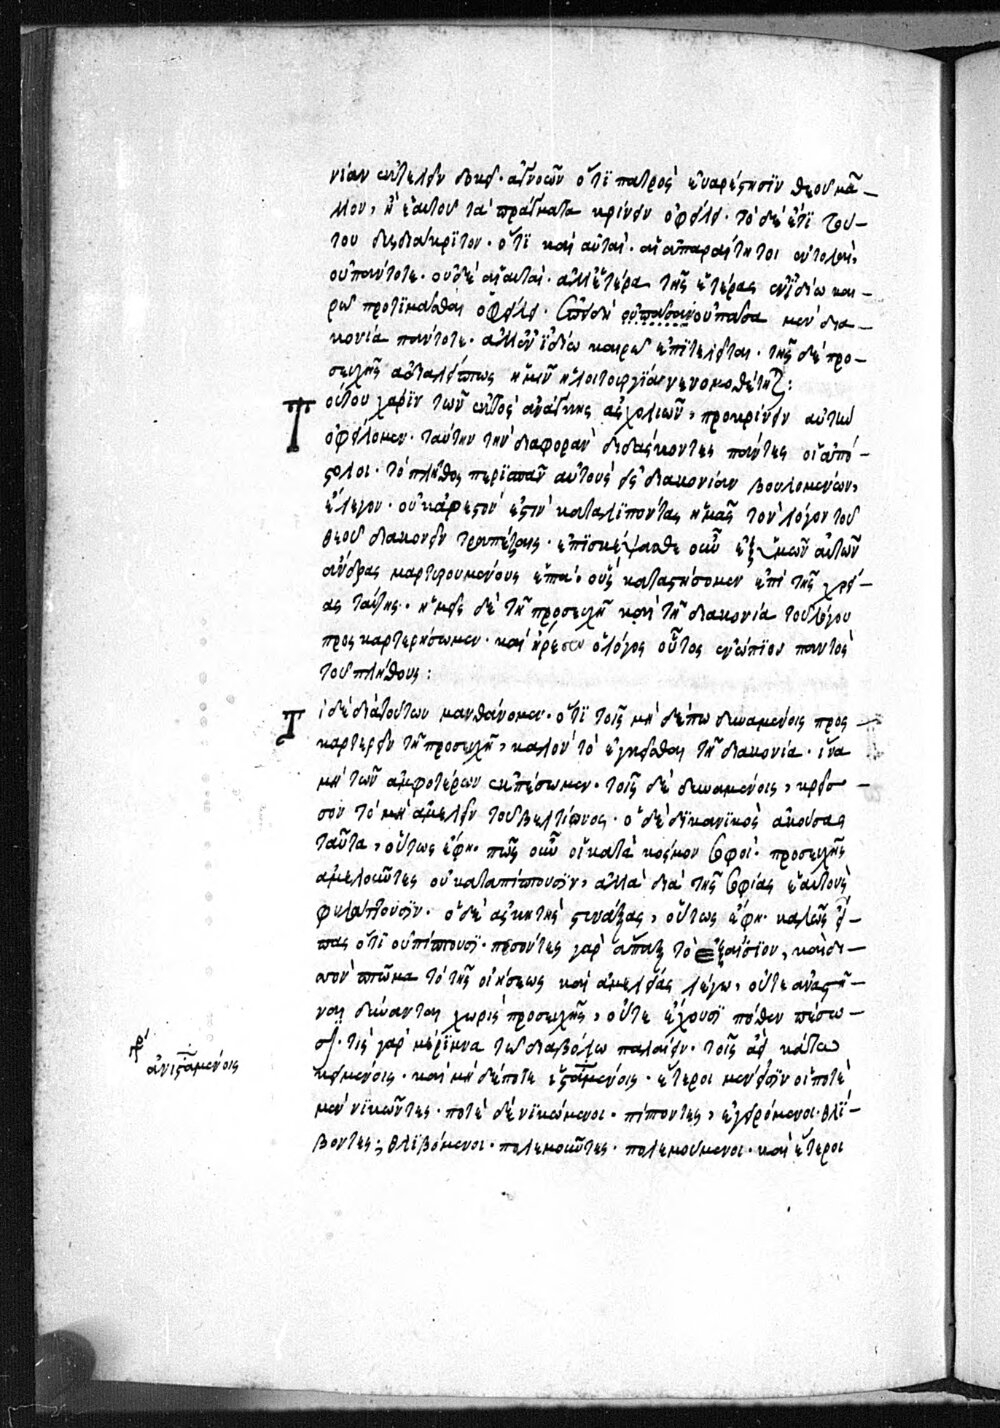 νίαν ἐκτελεῖν δοκεῖ· ἀγνοῶν ὅτι πατρὸς εὐαρέστησιν θεοῦ μᾶ–
λλον, ἢ ἑαυτοῦ τὰ πράγματα κρίνειν ὀφείλει· τὸ δὲ ἔτι του–
του δυσδιάκριτον· ὅτι καὶ αὗται· αἱ ἀπαραίτητοι ἐντολαὶ,
οὐ πάντοτε· οὐδὲ αἱ αὐταὶ· ἀλλ' ἑτέρα τῆς ἑτέρας ἐν ἰδίω και–
ρῶ προτιμᾶσθαι ὀφείλει· μὲν δια–
κονία πάντοτε· ἀλλ' ἐν ἰδίω καιρῶ ἐπιτελεῖται· τῆς δὲ προ–
σευχῆς ἀδιαλείπτως ἡμῖν ἡ λειτουργία νενομοθέτηται:
Τούτου χάριν τῶν ἐκτὸς ἀνάγκης ἀσχολιῶν, προκρίνειν αὐτὴν
ὀφείλομεν· ταύτην τὴν διαφορὰν διδάσκοντες πάντες οἱ ἀπό–
στολοι· τὸ πλῆθος περισπᾶν αὐτοὺς εἰς διακονίαν βουλομένων,
ἔλεγον· οὐκ ἀρεστόν ἐστιν καταλιπόντας ἡμᾶς τὸν λόγον τοῦ
θεοῦ διακονεῖν τραπέζαις· ἐπισκέψασθε οὖν ἐξ ὑμῶν αὐτῶν
ἄνδρας μαρτυρουμένους ἑπτά· οὓς καταστήσομεν ἐπὶ τῆς χρεί–
ας ταύτης· ἡμεῖς δὲ τῇ προσευχῇ καὶ τῇ διακονία τοῦ λόγου
προσκαρτερήσωμεν· καὶ ἤρεσεν ὁ λόγος οὗτος ἐνώπιον παντὸς
τοῦ πλήθους:
Τί δὲ διὰ τούτων μανθάνομεν· ὅτι τοῖς μὴ δέπω δυναμένοις προσ–
καρτερεῖν τῇ προσευχῇ, καλὸν τὸ ἐγκεῖσθαι τῇ διακονία· ἵνα
μὴ τῶν ἀμφοτέρων ἐκπέσωμεν· τοῖς δὲ δυναμένοις, κρεῖσ–
σον τὸ μὴ ἀμελεῖν τοῦ βελτίωνος· ὁ δὲ δικανικὸς ἀκούσας
ταῦτα, οὕτως ἔφη· πῶς οὖν οἱ κατὰ κόσμον σοφοὶ· προσευχῆς
ἀμελοῦντες οὐ καταπίπτουσιν, ἀλλὰ διὰ τῆς σοφίας ἑαυτοὺς
φυλάττουσιν· ὁ δὲ ἀσκητὴς στενάξας, οὕτως ἔφη· καλῶς εἶ–
πας ὅτι οὐ πίπτουσι· πεσόντες γὰρ ἅπαξ τὸ ἐξαίσιον, καὶ δι–
σσὸν πτῶμα τὸ τῆς οἰήσεως καὶ ἀμελείας λέγω, οὔτε ἀναστῆ–
ναι δύνανται χωρὶς προσευχῆς, οὔτε ἔχουσι πόθεν πέσω–
σι· τίς γὰρ μέριμνα τῶ διαβόλω παλαίειν· τοῖς ἀεὶ κάτω
κειμένοις· καὶ μηδέποτε ἐξσταμένοις· ἕτεροι μέν εἰσιν οἱ ποτὲ
μὲν νικῶντες· ποτὲ δὲ νικώμενοι· πίπτοντες, ἐγειρόμενοι· θλί–
βοντες, θλιβόμενοι· πολεμοῦντες· πολεμούμενοι· καὶ ἕτεροι
ἀνισταμένοις